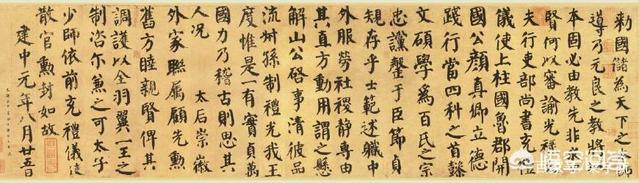 勅國儲為天下之本師
導乃元良之教將以
本固必由教先非求忠
賢何以審諭光祿大
夫行吏部尚書充禮
儀使上柱國魯郡開
國公顏真卿立德
踐行當四科之首懿
文碩學為百氏之宗
忠讜罄于臣節貞
規存乎士範述職中
外服勞社稷靜專由
其直方動用謂之懸
解山公啟事清彼品
流叔孫制禮光我王
度惟是一有實貞萬
國力乃稽古則思其
人況 太后崇徽
外家聯屬顧先勳
舊方睦親賢俾其
調護以全羽翼一王之
制咨爾兼之可太子
少師依前充禮儀使
散官勳封如故
建中元年八月廿五日
悟空问答